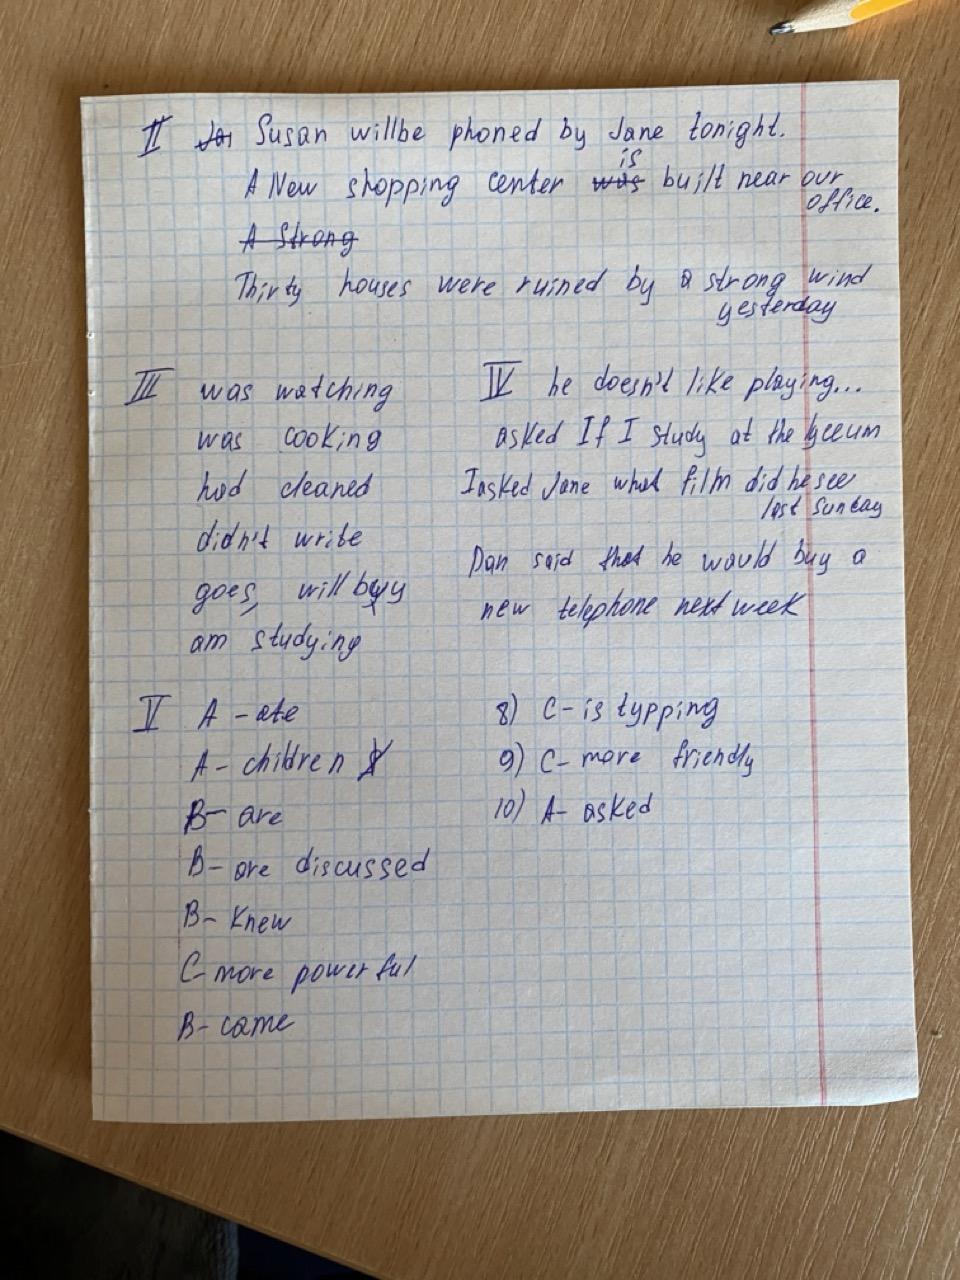 II Susan willbe phoned by Jane tonight.
A New shopping center was is built near our
office.
A Strong
Thirty houses were ruined by a strong wind
yesterday
III was watching
was cooking
had cleaned
didn't write
goes, will buy
am studying
IV he doesn't like playing...
asked If I study at the lyceum
I asked Jane what film did he see
last Sunday
Dan said that he would buy a
new telephone next week
V A - ate
A - children
B - are
B - are discussed
B - Knew
C - more powerful
B - came
8) C - is typping
9) C - more friendly
10) A - asked